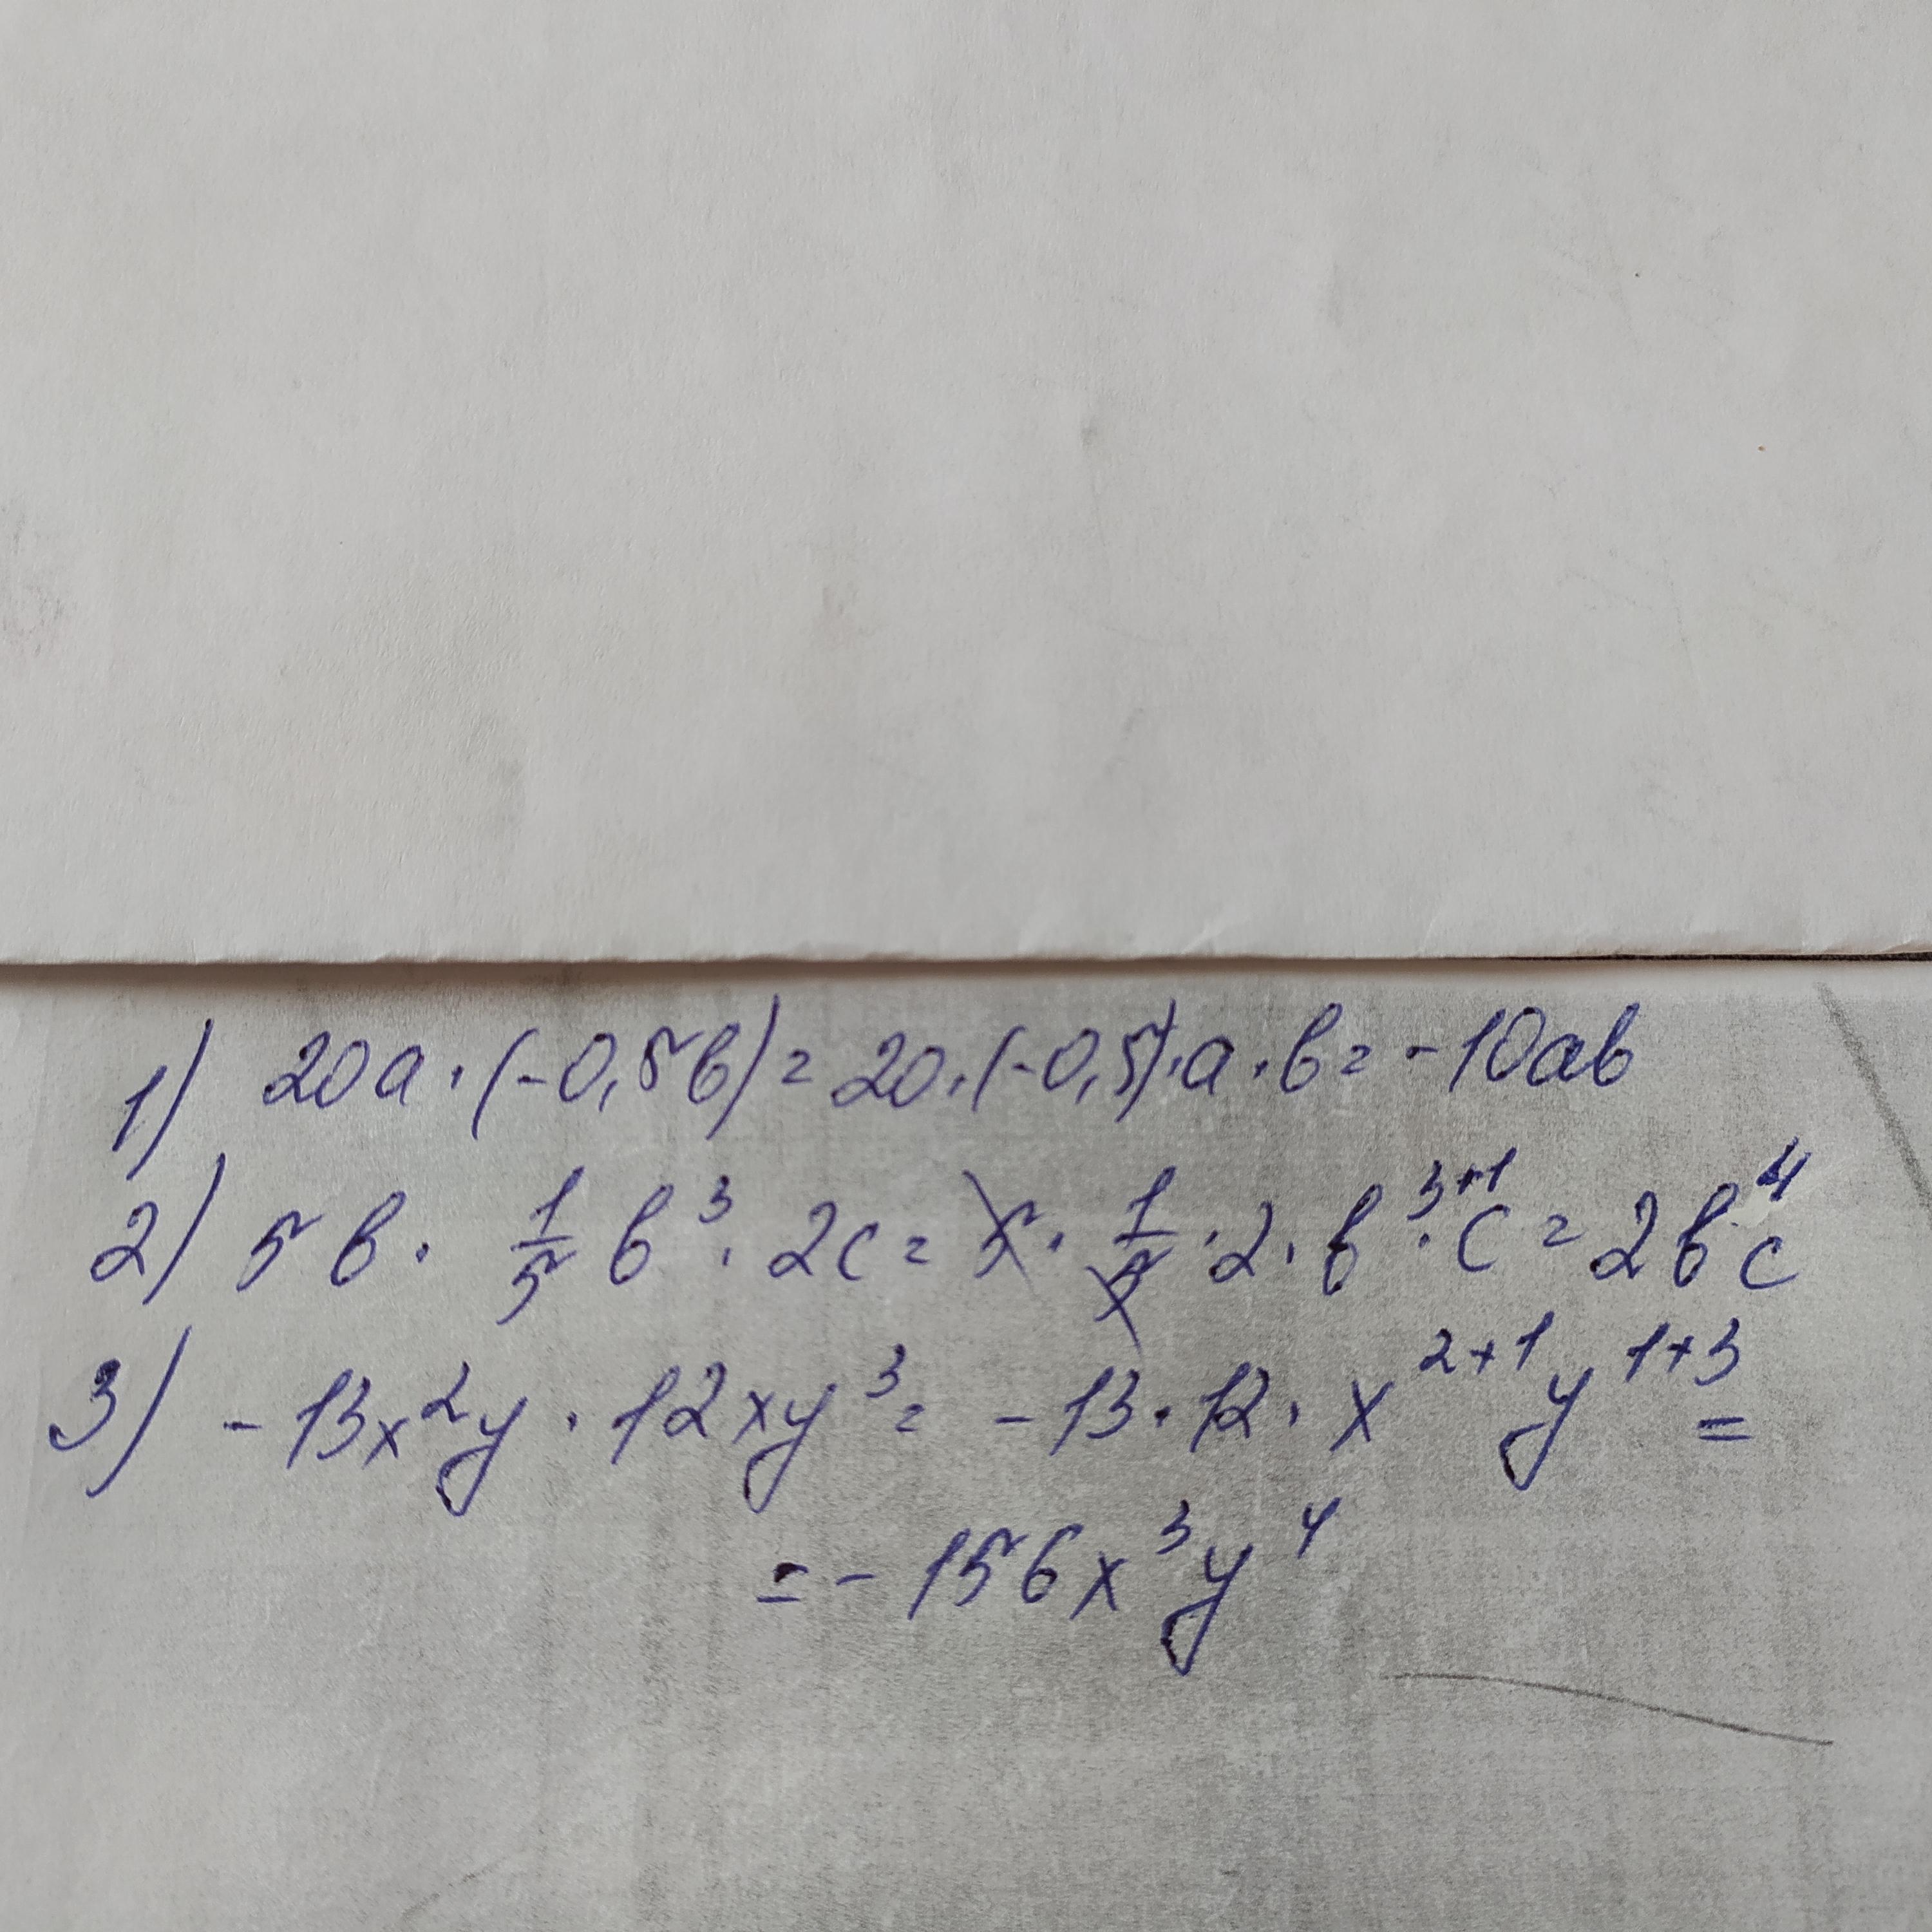 1) 20a · (-0,5b) = 20 · (-0,5) · a · b = -10ab
2) 5b · 1/5 b³ · 2c = 5 · 1/5 · 2 · b³⁺¹ · c = 2b⁴c
3) -13x²y · 12xy³ = -13 · 12 · x²⁺¹y¹⁺³ =
= -156x³y⁴